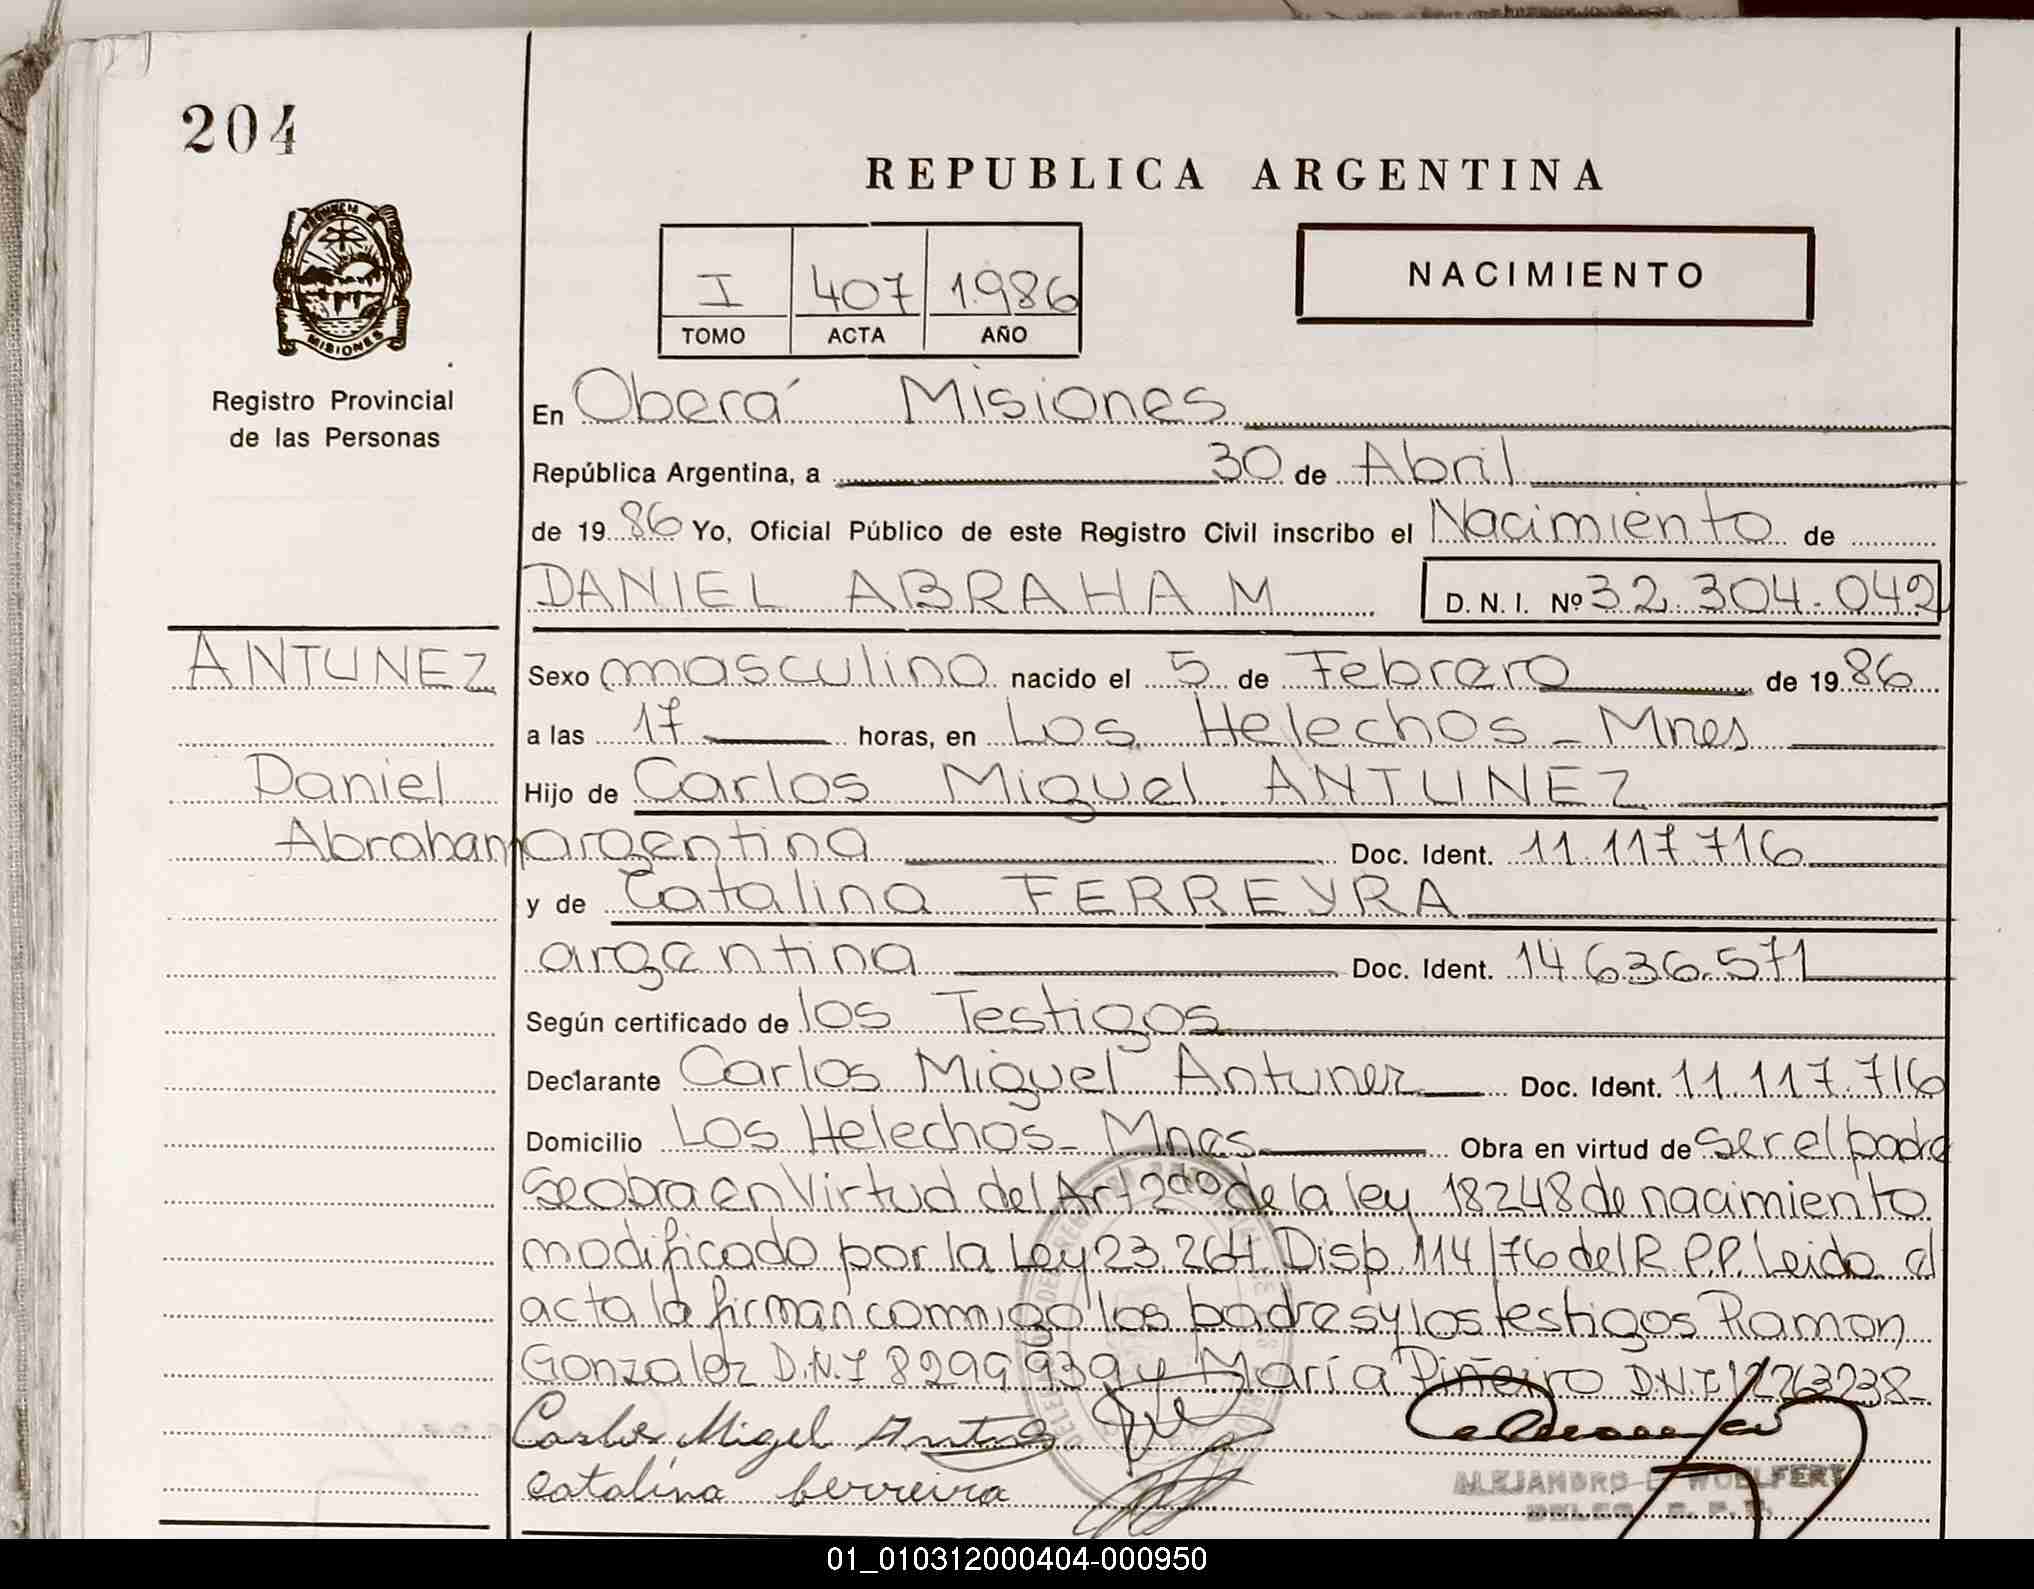 204
REPUBLICA ARGENTINA
PROVINCIA DE
MISIONES
Registro Provincial
de las Personas
I 407 1.986
TOMO ACTA AÑO
NACIMIENTO
En Oberá Misiones
República Argentina, a 30 de Abril
de 1986 Yo, Oficial Público de este Registro Civil inscribo el Nacimiento de
DANIEL ABRAHAM D. N. I. Nº 32.304.042
ANTUNEZ
Daniel
Abraham
Sexo masculino nacido el 5 de Febrero de 1986
a las 17 horas, en Los Helechos - Mnes
Hijo de Carlos Miguel ANTUNEZ
argentina Doc. Ident. 11.117.716
y de Catalina FERREYRA
argentina Doc. Ident. 14.636.571
Según certificado de los Testigos
Declarante Carlos Miguel Antunez Doc. Ident. 11.117.716
Domicilio Los Helechos - Mnes Obra en virtud de ser el padre
Se obra en Virtud del Art 2do de la ley 18248 de nacimiento
modificado por la Ley 23.264 Disp. 114/76 del R.P.P. Leida el
acta la firman conmigo los padres y los testigos Ramon
Gonzalez D.N.I 8299939 y María Piñeiro D.N.I. 12263238-
Carlos Migel Antunes
catalina berreira
ALEJANDRO E. WOELFERT
DELEG. R. P. P.
01_010312000404-000950